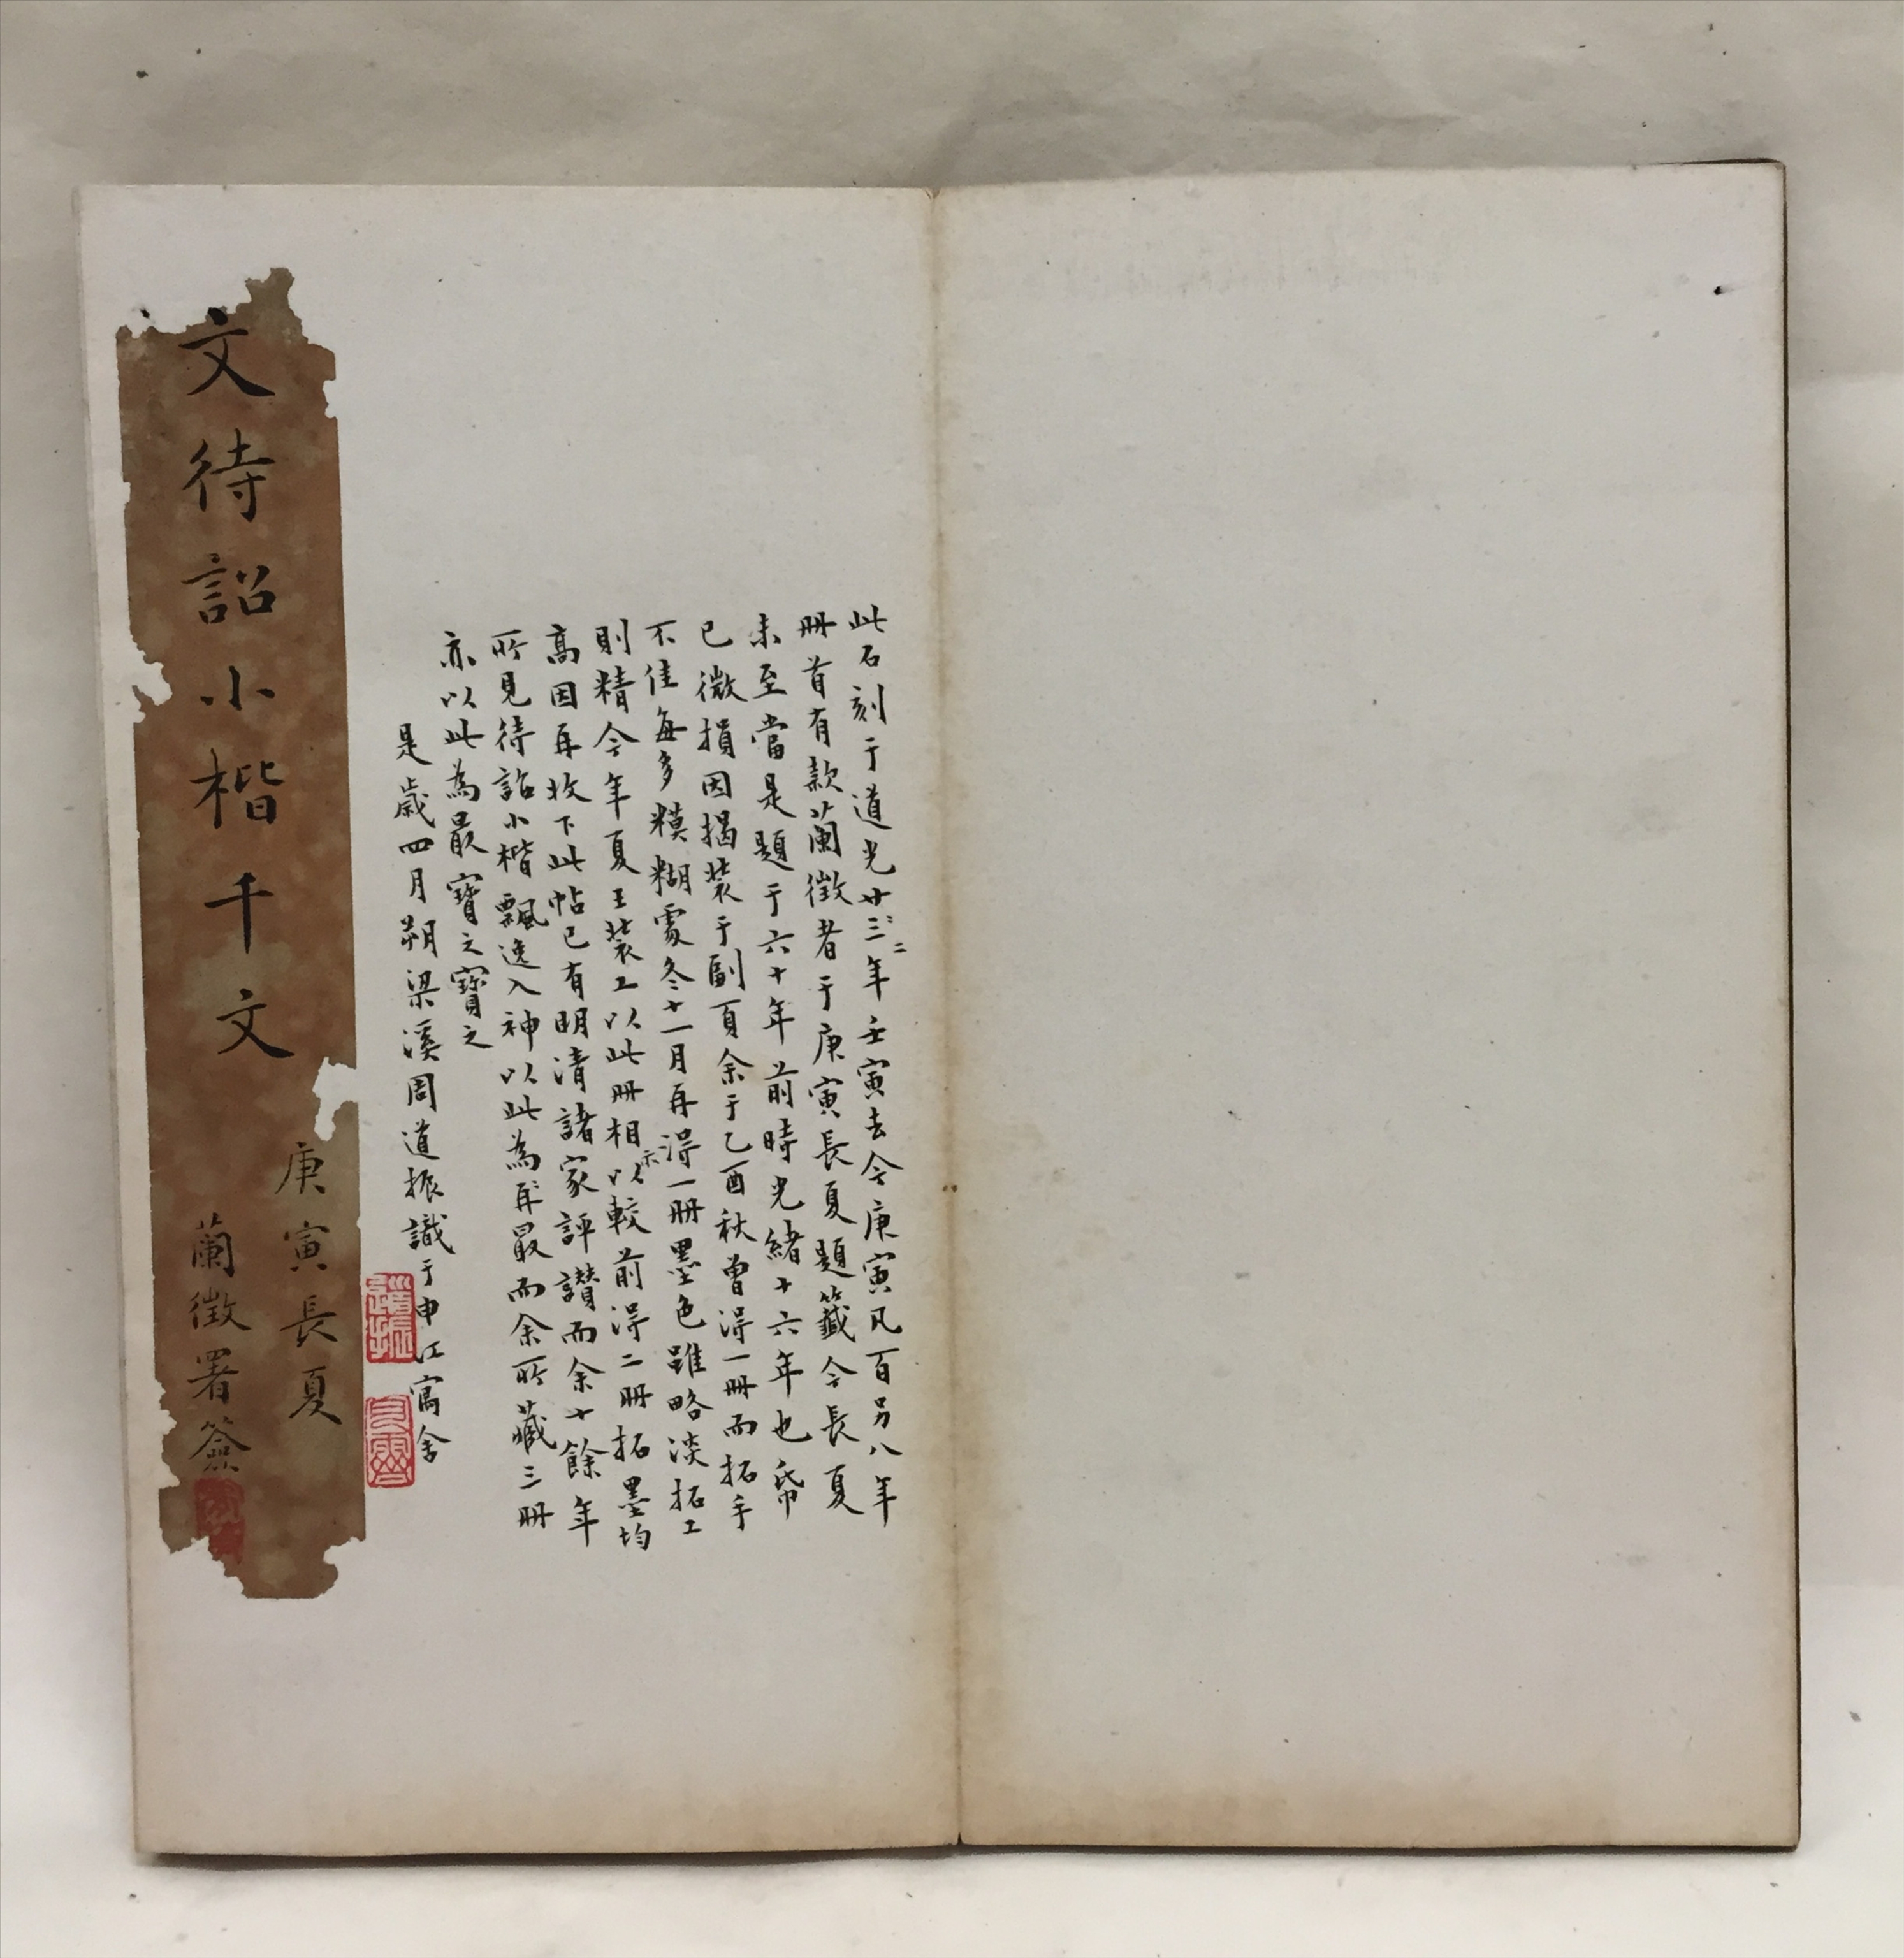 此石刻于道光廿三二年壬寅去今庚寅凡百另八年
冊首有款蘭徵者于庚寅長夏題籤今長夏
未至當是題于六十年前時光緒十六年也帋
已微損因揭裝于副頁余于乙酉秋曾得一冊而拓手
不佳每多糢糊處冬十一月再得一冊墨色雖略淡拓工
則精今年夏王裝工以此冊相示以較前得二冊拓墨均
高因再收下此帖已有明清諸家評讃而余十餘年
所見待詔小楷飄逸入神以此為最而余所藏三冊
亦以此為最寶之寶之
是歲四月朔梁溪周道振識于申江寓舍
道振
文待詔小楷千文
庚寅長夏
蘭徵署簽